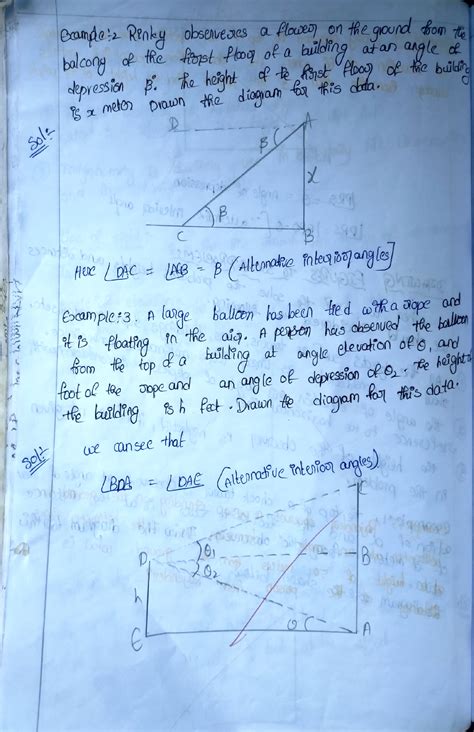 Example:2 Rinky observeres a flower on the ground from the
balcony of the first floor of a building at an angle of
depression β°. The height of te first floor of the building
is x meter Drawn the diagram for this data.
Sol:-
D A
β
x
β
C B
Here ∠DAC = ∠ACB = β (Alternative interior angles]
Example:3. A large balloon has been tied with a rope and
it is floating in the air. A person has observed the balloon
from the top of a building at angle elevation of θ, and
foot of the rope and an angle of depression of θ₂. The height
the building is h feet. Drawn te diagram for this data.
Sol:-
we can see that
∠BDA = ∠DAE (Alternative interior angles)
C
θ₁
D B
θ₂
h
θ
E A